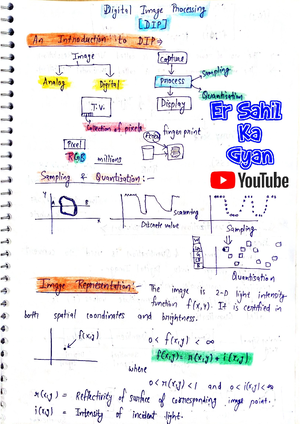 Digital Image Processing
[DIP]
An Introduction to DIP →
Image
Capture
Analog
Digital
process
Sampling
Quantization
T.V.
Display
Collection of pixels
Er Sahil
Ka
Gyan
YouTube
Pixel
finger point
RGB millions
Sampling & Quantization:-
y
A
B
x
scanning
Discrete value
Sampling
Quantization
Image Representation:- The image is 2-D light intensity
function f(x,y). It is certified in
both spatial coordinates and brightness.
f(x,y)
0 < f(x,y) < ∞
f(x,y) = r(x,y) * i(x,y)
where
0 < r(x,y) < 1 and 0 < i(x,y) < ∞
r(x,y) = Reflectivity of surface of corresponding image point.
i(x,y) = Intensity of incident light.